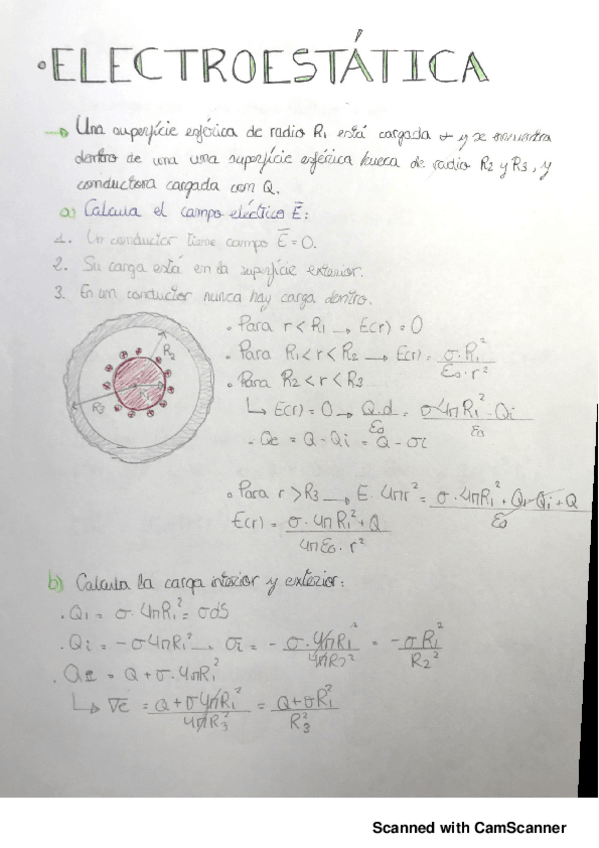 ·ELECTROESTÁTICA
→ Una superfície esférica de radio R₁ está cargada + y se encuentra
dentro de una una superfície esférica hueca de radio R₂ y R₃, y
conductora cargada con Q.
a) Calcula el campo eléctrico E̅:
1. Un conductor tiene campo E̅ = 0.
2. Su carga está en la superfície exterior.
3. En un conductor nunca hay carga dentro.
R₂
R₃
· Para r < R₁ → E(r) = 0
· Para R₁ < r < R₂ → E(r) = σ·R₁² / ε₀·r²
· Para R₂ < r < R₃
↳ E(r) = 0 → Q.d / ε₀ = σ4πR₁² - Qi / ε₀
- Qe = Q - Qi = Q - σi
· Para r > R₃ → E·4πr² = σ·4πR₁² + Qi - Qi + Q / ε₀
E(r) = σ·4πR₁² + Q / 4πε₀·r²
b) Calcula la carga interior y exterior:
· Q₁ = σ·4πR₁² = σdS
· Qi = -σ4πR₁² → σi = - σ·4πR₁² / 4πR₂² = -σR₁² / R₂²
· Qe = Q + σ·4πR₁²
↳ σe = Q + σ4πR₁² / 4πR₃² = Q + σR₁² / R₃²
Scanned with CamScanner